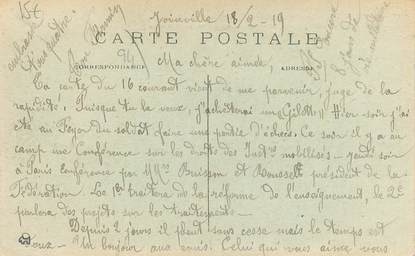 15€
Joinville 18/2-19
CARTE POSTALE
CORRESPONDANCE
ADRESSE
Ma chère aimée,
Ta carte du 16 courant vient de me parvenir, juge de la
rapidité. Puisque tu le veux, j'achèterai un Gil Hier soir j'ai
été au Foyer du soldat faire une partie d'échecs. Ce soir il y a au
camp une Conférence sur les droits des Inst^rs mobilisés - jeudi soir
à Paris conférence par MM^rs Buisson et président de la
Fédération. Le 1^er traitera de la réforme de l'enseignement, le 2^e
parlera des projets sur les traitements.
Depuis 2 jours il pleut sans cesse mais le temps est
doux - Un bonjour aux amis. Celui qui vous aime